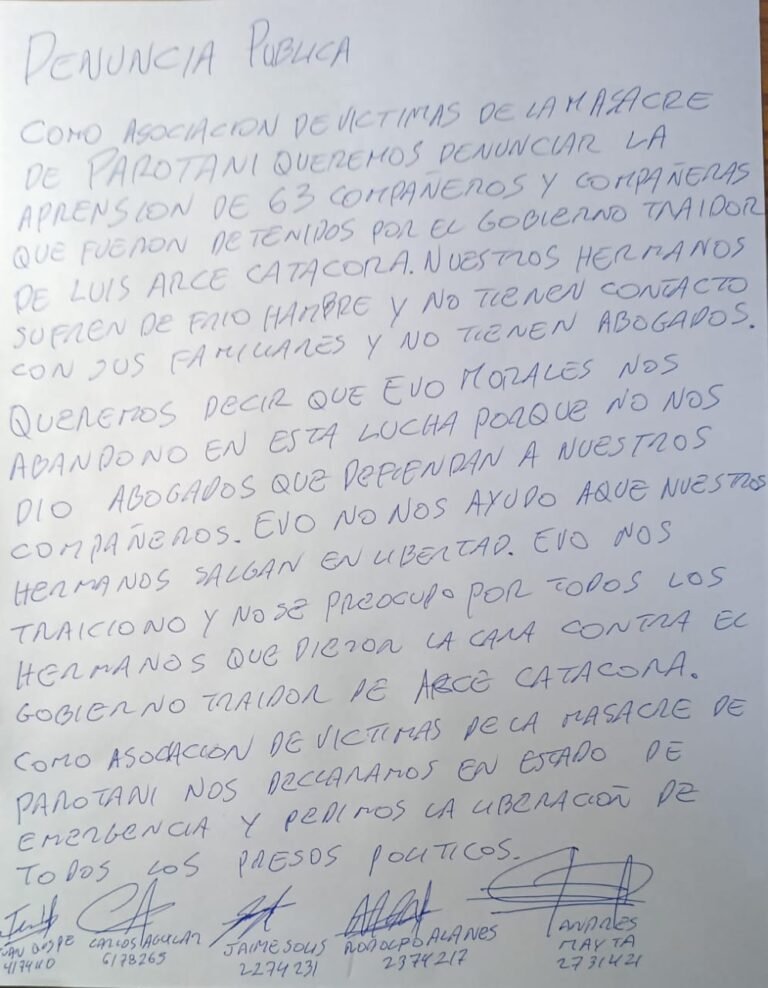 DENUNCIA PUBLICA
COMO ASOCIACION DE VICTIMAS DE LA MASACRE
DE PAROTANI QUEREMOS DENUNCIAR LA
APRENSION DE 63 COMPAÑEROS Y COMPAÑERAS
QUE FUERON DETENIDOS POR EL GOBIERNO TRAIDOR
DE LUIS ARCE CATACORA. NUESTROS HERMANOS
SUFREN DE FRIO HAMBRE Y NO TIENEN CONTACTO
CON SUS FAMILIARES Y NO TIENEN ABOGADOS.
QUEREMOS DECIR QUE EVO MORALES NOS
ABANDONO EN ESTA LUCHA PORQUE NO NOS
DIO ABOGADOS QUE DEFIENDAN A NUESTROS
COMPAÑEROS. EVO NO NOS AYUDO AQUE NUESTROS
HERMANOS SALGAN EN LIBERTAD. EVO NOS
TRAICIONO Y NO SE PREOCUPO POR TODOS LOS
HERMANOS QUE DIERON LA CARA CONTRA EL
GOBIERNO TRAIDOR DE ARCE CATACORA.
COMO ASOCIACION DE VICTIMAS DE LA MASACRE DE
PAROTANI NOS DECLARAMOS EN ESTADO DE
EMERGENCIA Y PEDIMOS LA LIBERACIÓN DE
TODOS LOS PRESOS POLITICOS.
CARLOS AGUILAR JAIME SOLIS RODOLFO ALANES ANDRES
MAYTA
4174110 6178265 2274231 2374217 2731421